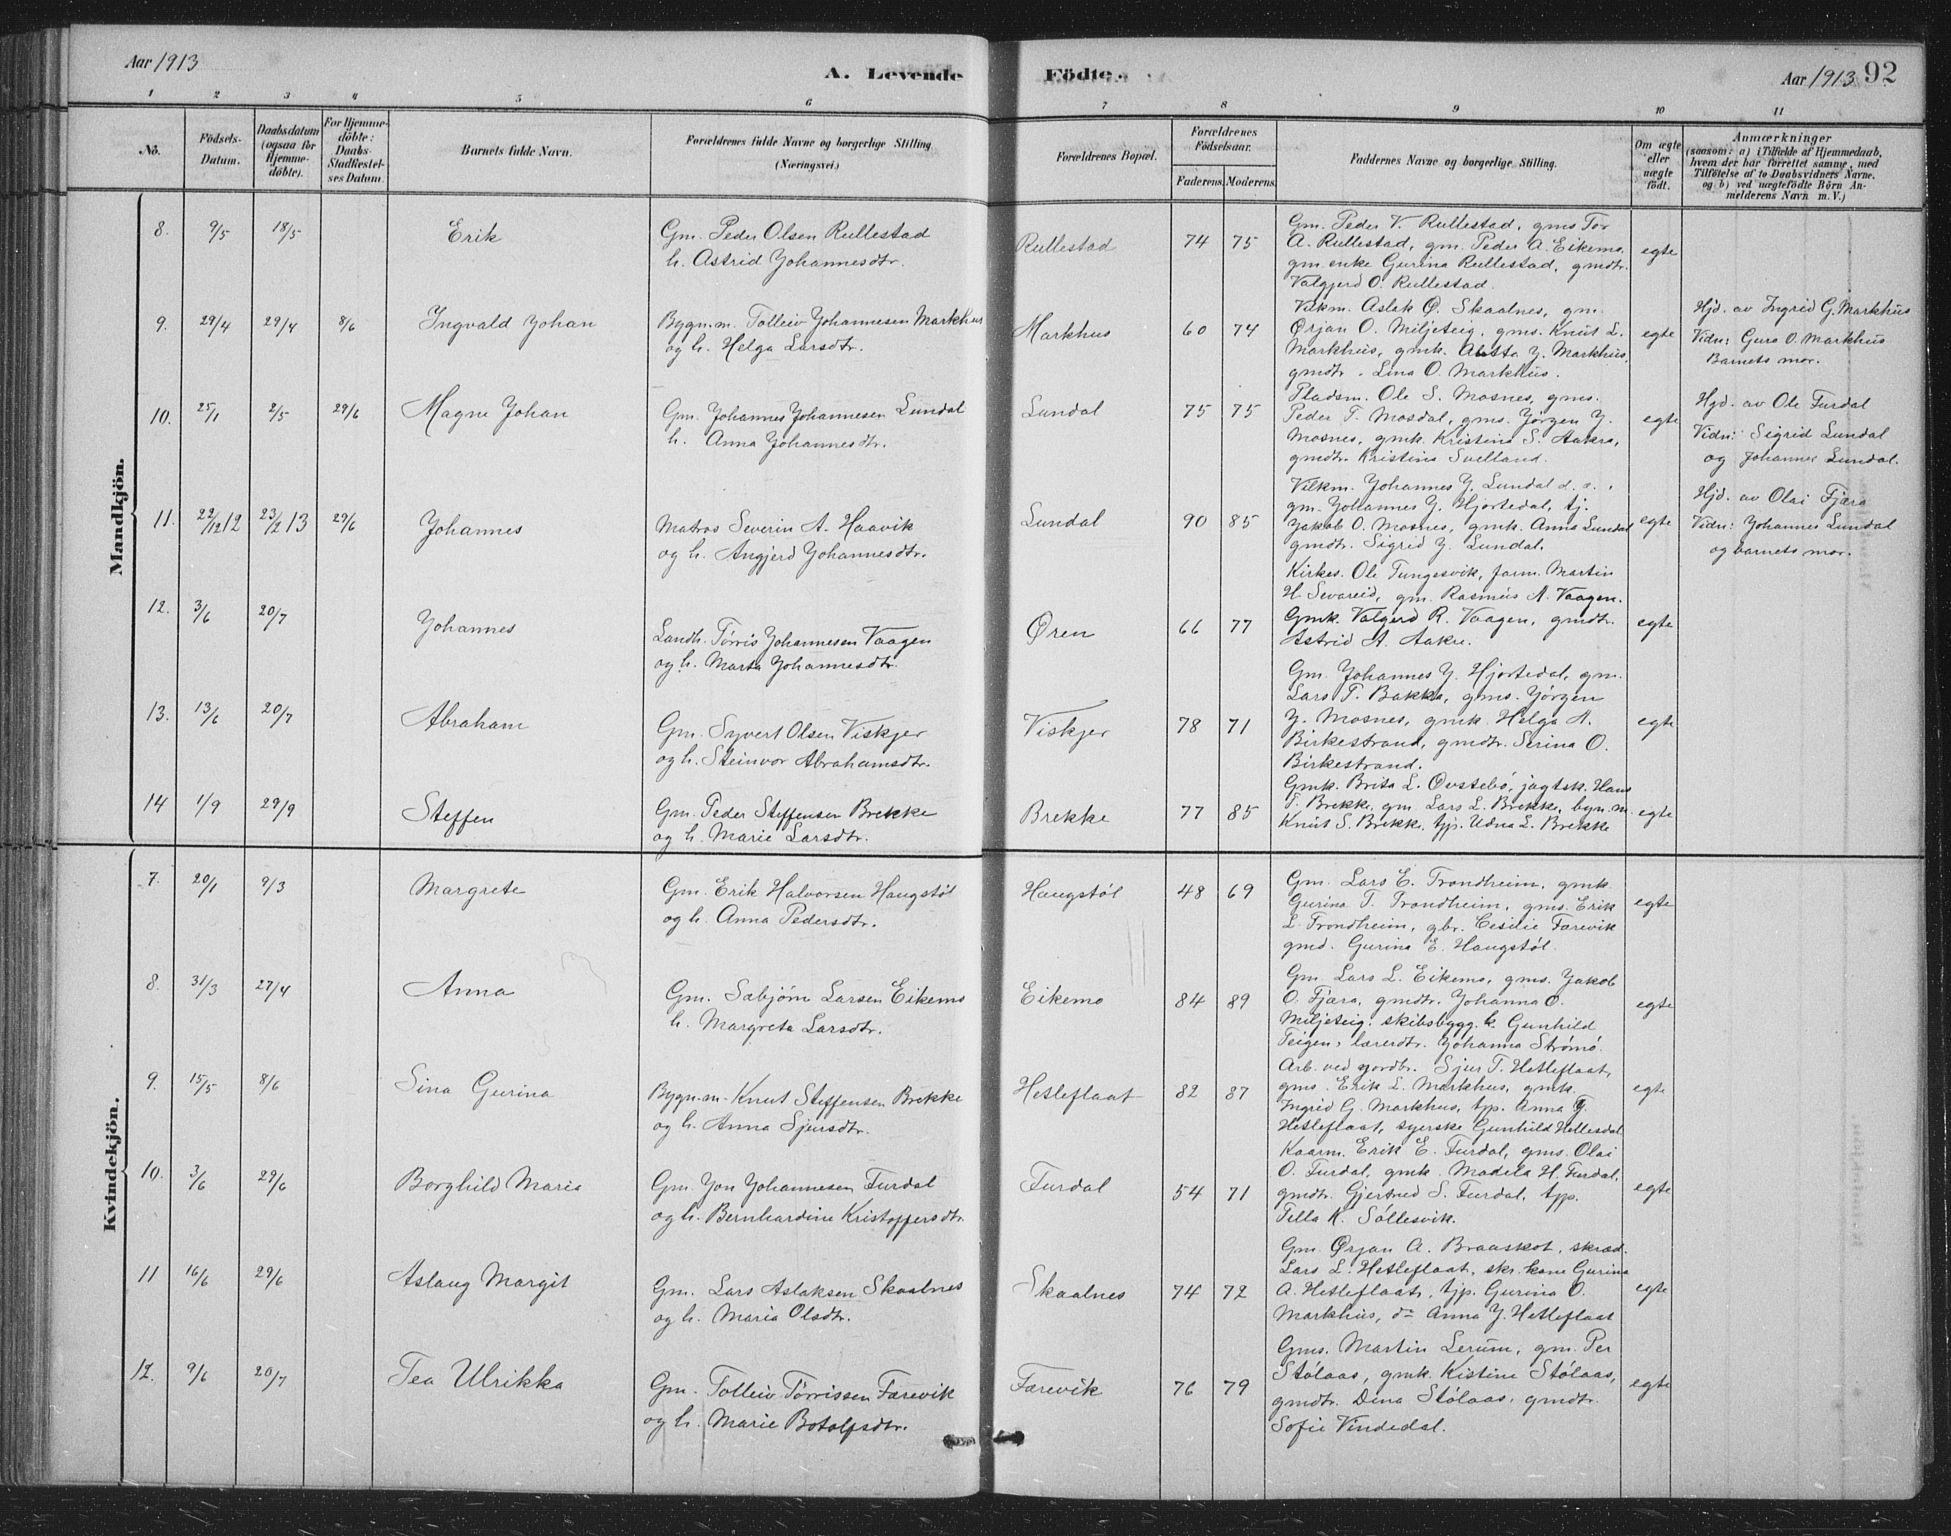 Aar 1913
A. Levende Födte.
Aar 1913 92
1 2 3 4 5 6 7 8 9 10 11
No.
Födsels-
Datum.
Daabsdatum
(ogsaa for
Hjemme-
döbte).
For Hjemme-
döbte:
Daabs-
Stadfæstel-
ses Datum.
Barnets fulde Navn.
Forældrenes fulde Navne og borgerlige Stilling
(Næringsvei.)
Forældrenes Bopæl.
Forældrenes
Födselsaar.
Faderens. Moderens.
Faddernes Navne og borgerlige Stilling.
Om ægte
eller
uægte
födt.
Anmærkninger
(saasom: a) i Tilfælde af Hjemmedaab,
hvem der har forrettet samme, med
Tilföielse af to Daabsvidners Navne.
og b) ved uægtefödte Börn An-
melderens Navn m. V.)
Mandkjön.
8. 9/5 18/5 Erik
Gm. Peder Olsen Rullestad
h. Astrid Johannesdtr.
Rullestad 74 75
Gm. Peder V. Rullestad, gms Tor
A. Rullestad, gm. Peder A. Eikemo,
gm. enke Gurina Rullestad, gmdtr.
Valgjerd O. Rullestad.
egte
9. 29/4 29/4 8/6 Ingvald Johan
Bygn.m. Tolleiv Johannesen Markhus
og h. Helga Larsdtr.
Markhus 60 74
Vilkm. Aslak Ø. Skaalnes, gm.
Ørjan O. Miljeteig, gms. Knut L.
Markhus, gmk. J. Markhus,
gmdtr. Lina O. Markhus.
egte
Hjd. av Ingrid G. Markhus
Vidn: Guro O. Markhus
Barnets mor.
10. 25/1 2/5 29/6 Magne Johan
Gm. Johannes Johannesen Lundal
h. Anna Johannesdtr.
Lundal 75 75
Pladsm. Ole S. Mosnes, gms.
Peder T. Mosdal, gms. Jørgen J.
Mosnes, gmk. Kristina S. Aakre,
gmdtr. Kristina Svelland.
egte
Hjd. av Ole Furdal
Vidn: Sigrid Lundal
og Johannes Lundal.
11. 22/12 12 23/2 13 29/6 Johannes
Matros Severin A. Haavik
og h. Angjerd Johannesdtr.
Lundal 90 85
Vilkm. Johannes J. Lundal d. e.,
gm. Johannes J. Hjortedal, tj.
Jakob O. Mosnes, gmk. Anna Lundal
gmdtr. Sigrid J. Lundal.
egte
Hjd. av Olai Fjæra
Vidn: Johannes Lundal
og barnets mor.
12. 3/6 20/7 Johannes
Landh. Tørris Johannesen Vaagen
og h. Marta Johannesdtr.
Øren 66 77
Kirkes. Ole Tungesvik, farm. Martin
H. Sævareid, gm. Rasmus A. Vaagen.
Gmk. Valgerd R. Vaagen, gmdtr.
Astrid A. Aakre.
egte
13. 13/6 20/7 Abraham
Gm. Syvert Olsen Viskjer
og h. Steinvor Abrahamsdtr.
Viskjer 78 71
Gm. Johannes J. Hjortedal, gm.
Lars T. Bakka, gms. Jørgen
J. Mosnes, gmk. Helga A.
Birkestrand, gmdtr. Serina O.
Birkestrand.
egte
14 1/9 29/9 Steffen
Gm. Peder Steffensen Brekke
og h. Marie Larsdtr.
Brekke 77 85
Gmk. Brita L. Øvstebø, jagtsk. Hans
S. Brekke, gm. Lars L. Brekke, bygn.m.
Knut S. Brekke, tjp. Udna L. Brekke
egte
Kvindekjön.
7. 20/1 9/3 Margrete
Gm. Erik Halvorsen Haugstøl
og h. Anna Pedersdtr.
Haugstøl 48 69
Gm. Lars E. Trondheim, gmk.
Gurina T. Trondheim, gms. Erik
L. Trondheim, gbr. Cesilie Færevik
gmd. Gurina E. Haugstøl.
egte
8. 31/3 27/4 Anna
Gm. Sæbjörn Larsen Eikemo
h. Margreta Larsdtr.
Eikemo 84 89
Gm. Lars L. Eikemo, gms. Jakob
O. Fjæra, gmdtr. Johanna O.
Miljeteig, skibsbygg.k. Gunhild
Teigen, lærerdtr. Johanna Strømø.
egte
9. 15/5 8/6 Sina Gurina
Bygn.m. Knut Steffensen Brekke
og h. Anna Sjursdtr.
Hetleflaat 82 87
Arb. ved jordbr. Sjur T. Hetleflaat,
gms. Erik L. Markhus, gmk.
Ingrid G. Markhus, tjp. Anna J.
Hetleflaat, syerske Gunhild Hellesdal
egte
10. 3/6 29/6 Borghild Maria
Gm. Jon Johannesen Furdal
og h. Bernhardine Kristoffersdtr.
Furdal 54 71
Kaarm. Erik E. Furdal, gms. Olai
O. Furdal, gmk. Madela H. Furdal,
gmdtr. Gjertrud S. Furdal, tjp.
Tella K. Søllesvik.
egte
11 16/6 29/6 Aslaug Margit
Gm. Lars Aslaksen Skaalnes
og h. Maria Olsdtr.
Skaalnes 74 72
Gm. Ørjan A. Braaskot, skræd.
Lars L. Hetleflaat, skr. kone Gurina
A. Hetleflaat, tjp. Gurina O.
Markhus, do Anna J. Hetleflaat
egte
12. 9/6 20/7 Tea Ulrikka
Gm. Tolleiv Tørrissen Færevik
og h. Marie Botolfsdtr.
Færevik 76 79
Gms. Martin Lerum, gm. Per
Stølaas, gmk. Kistine Stølaas,
gmdtr. Dina Stølaas, gmdtr.
Sofie Vindedal.
egte